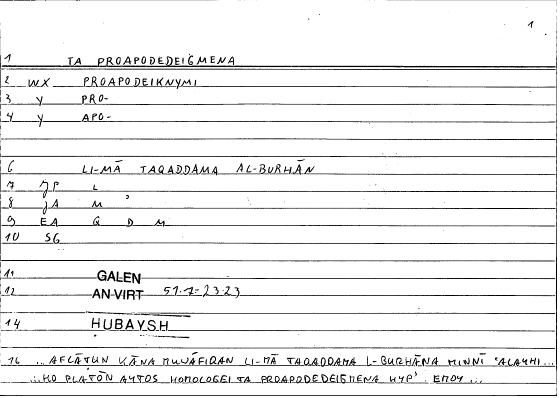 1
1 TA PROAPODEDEIGMENA
2 WX PROAPODEIKNYMI
3 Y PRO-
4 Y APO-
6 LI-MĀ TAQADDAMA AL-BURHĀN
7 JP L
8 JA M ʾ
9 EA Q D M
10 SG
11 GALEN
12 AN-VIRT 51.7-23.23
14 HUBAYSH
16 ... AFLĀṬUN KĀNA MUWĀFIQAN LI-MĀ TAQADDAMA L-BURHĀNA MINNĪ ʿALAYHI ...
...HO PLATŌN AYTOS HOMOLOGEI TA PROAPODEDEIGMENA HYP' EMOY ...